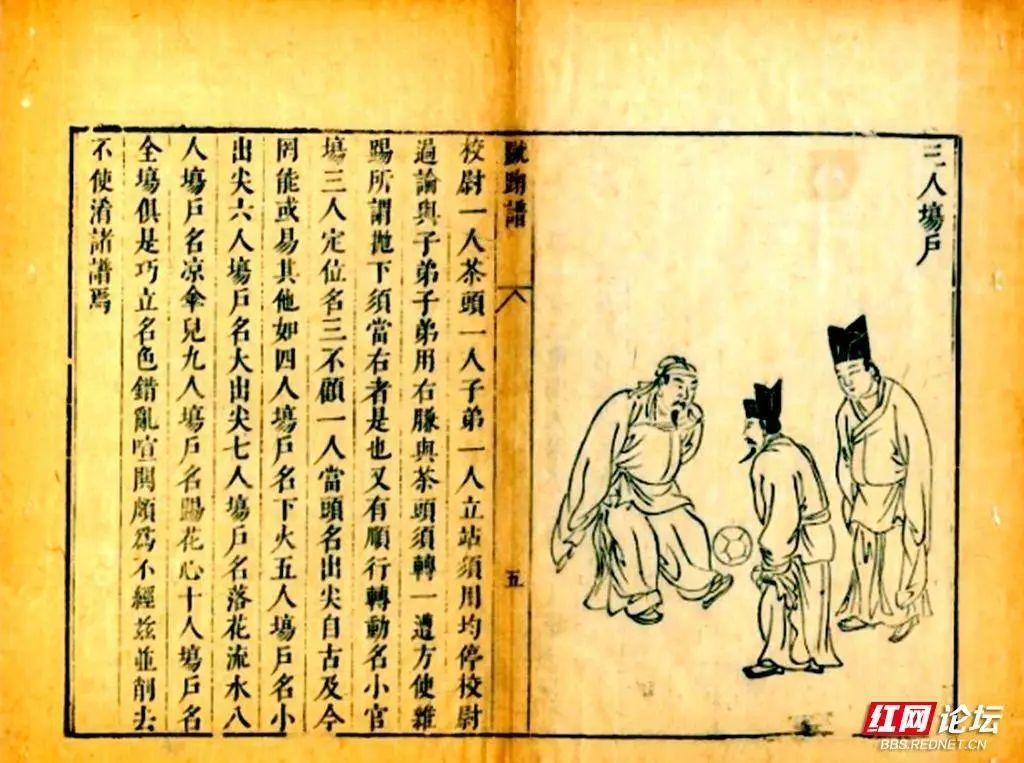 三人塲戶
蹴踘譜
五
校尉一人茶頭一人子弟一人立站須用均停校尉
過論與子弟子弟用右膁與茶頭須轉一遭方使雜
踢所謂拋下須當右者是也又有順行轉動名小官
塲三人定位名三不顧一人當頭名出尖自古及今
罔能或易其他如四人塲戶名下火五人塲戶名小
出尖六人塲戶名大出尖七人塲戶名落花流水八
人塲戶名凉傘兒九人塲戶名踢花心十人塲戶名
全塲俱是巧立名色錯亂喧鬨頗爲不經兹並削去
不使淆諸譜焉
红网论坛
BBS.REDNET.CN